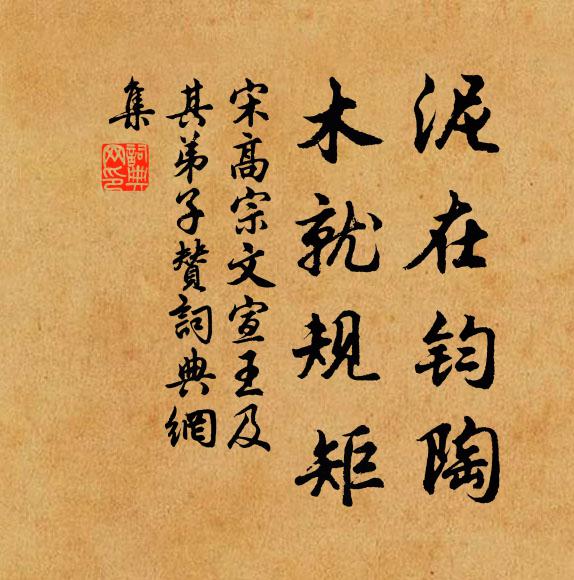 泥在钧陶
木就规矩
宋高宗文宣王及
其弟子赞词典網
集
詞典網印